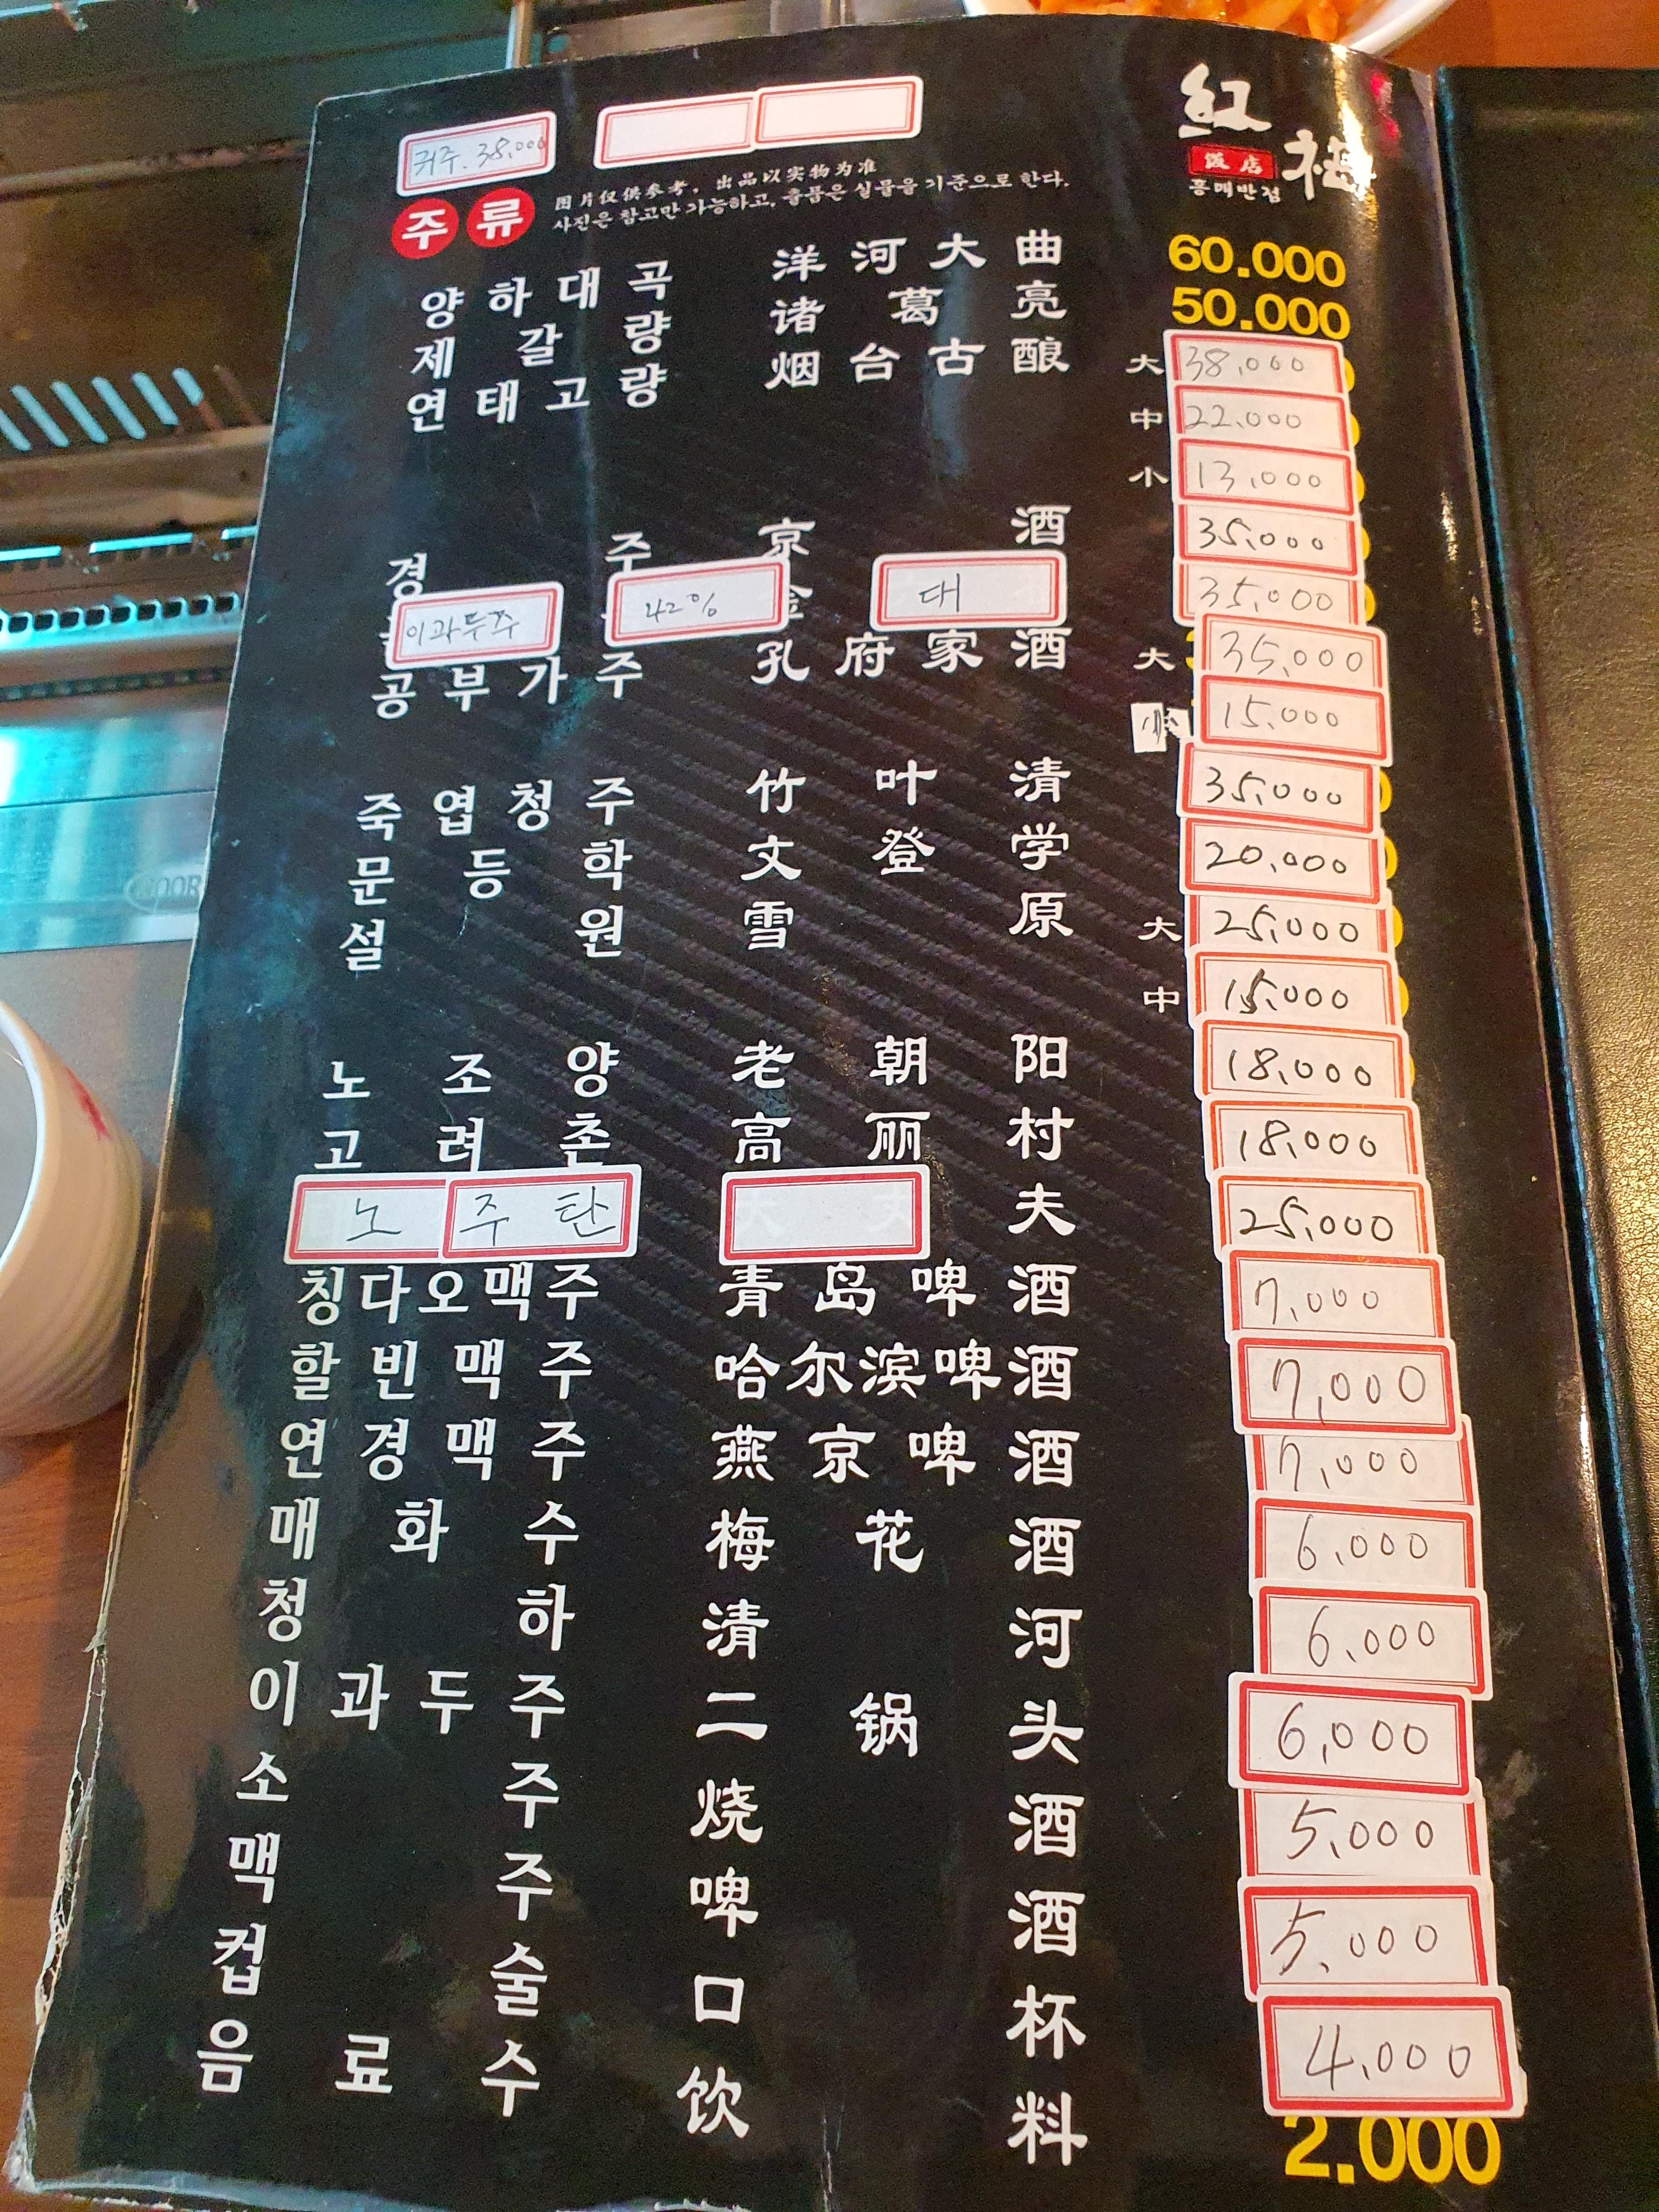 귀주. 38,000
红梅
饭店
홍매반점
주류
图片仅供参考，出品以实物为准
사진은 참고만 가능하고, 출품은 실물을 기준으로 한다.
양하대곡 洋河大曲 60.000
제갈량 诸葛亮 50.000
연태고량 烟台古酿 大 38,000
中 22,000
小 13,000
경주 京酒 35,000
이과두주 42% 대 35,000
공부가주 孔府家酒 大 35,000
小 15,000
죽엽청주 竹叶清 35,000
문등학 文登学 20,000
설원 雪原 大 25,000
中 15,000
노조양 老朝阳 18,000
고려촌 高丽村 18,000
노주탄 夫 25,000
칭다오맥주 青岛啤酒 7,000
할빈맥주 哈尔滨啤酒 7,000
연경맥주 燕京啤酒 7,000
매화수 梅花酒 6,000
청하 清河 6,000
이과두주 二锅头 6,000
소주 烧酒 5,000
맥주 啤酒 5,000
컵술 口杯 4,000
음료수 饮料 2.000